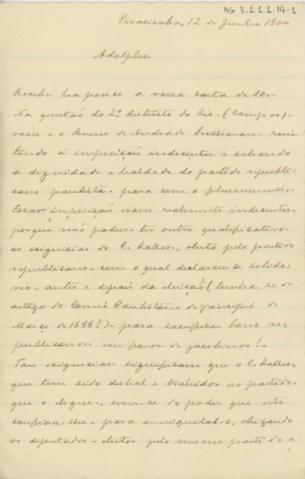 AG 3.1.1.1.14-1
Piracicaba, 12 de Junho 1900
Adolpho.
Recebi ha pouco a vossa carta de 10.-
Na questão do 2º districto do Rio - (Campos)
voce e o Bueno de Andrada
tindo á imposição indecente e salvando
a dignidade e lealdade do partido republi-
cano paulista - para com o fluminense.
Essas imposições eram realmente indecentes
porque não podem ter outro qualificativo
as exigencias do C. Salles, eleito pelo partido
republicano - com o qual declarou-se solida-
rio - antes e depois da eleição (lembra-se do
artigo do Correio Paulistano de principios de
Março de 1898?) - para sacrificar bons
republicanos em favor de jacobinos? -
Taes exigencias significam que o C. Salles,
que tem sido desleal e ao partido
que o elegeu, serve-se do poder que este
- para anniquilal-o, obrigando
os deputados - eleitos pelo mesmo partido á